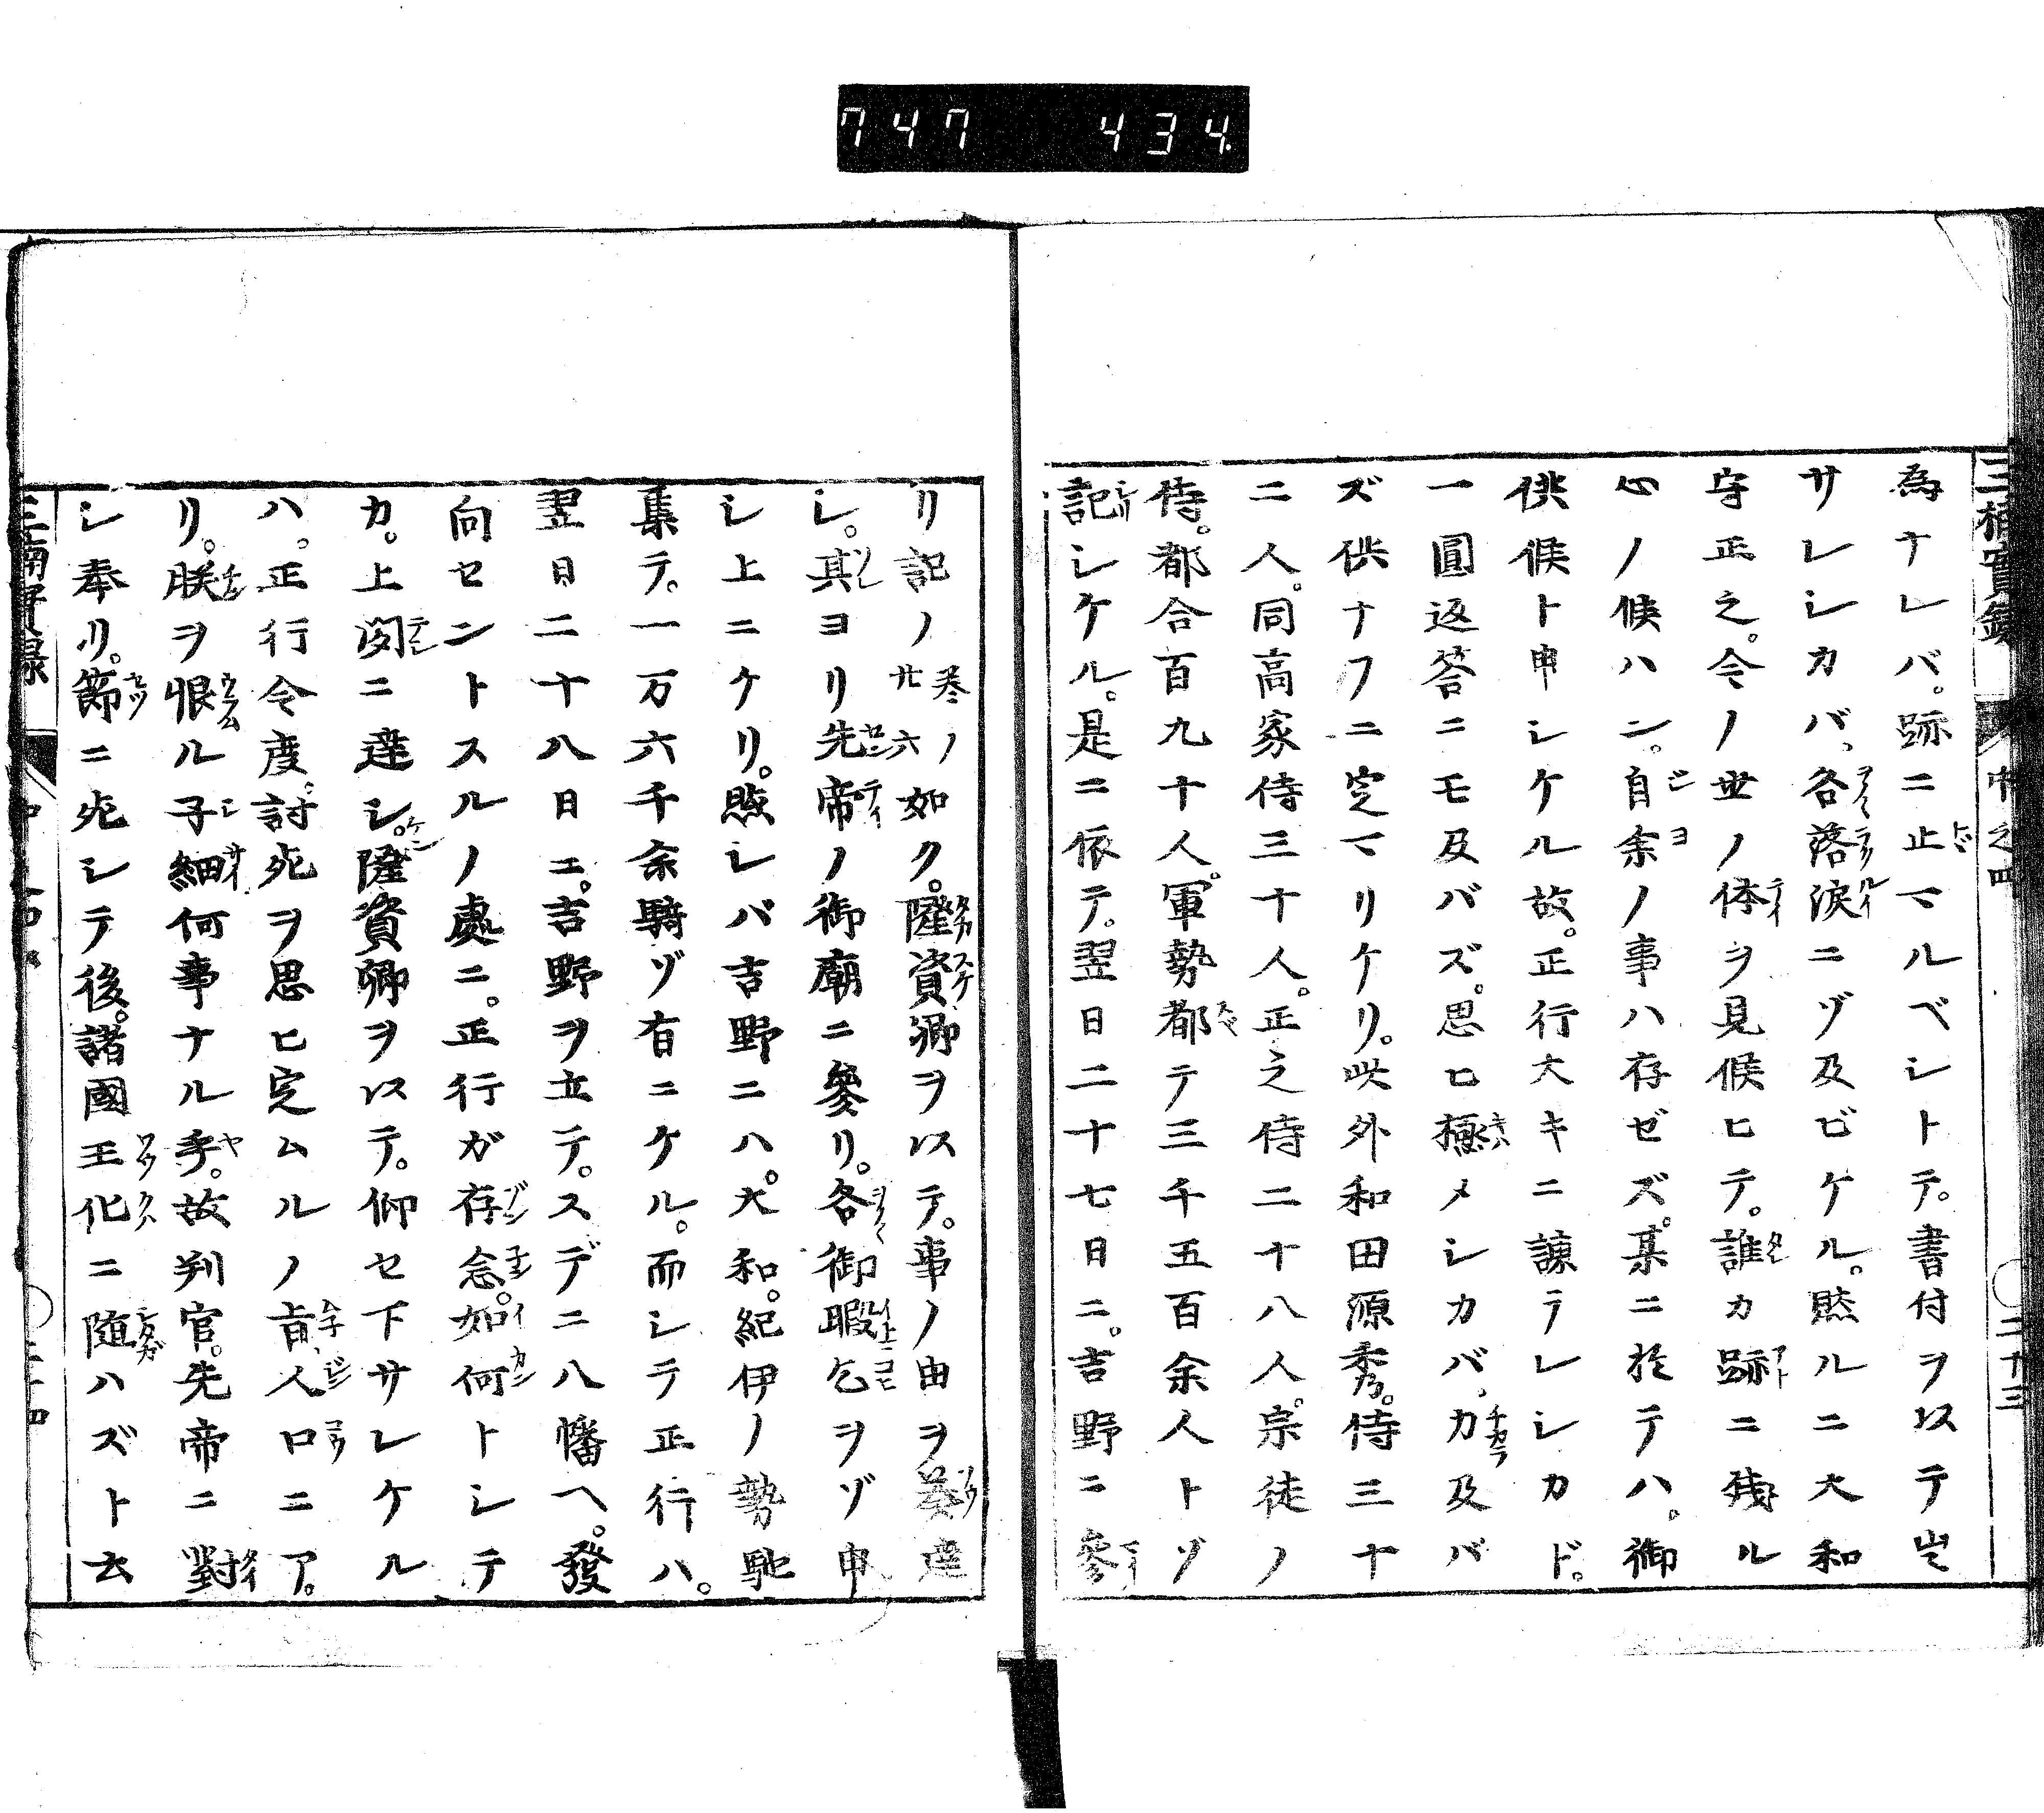 747 434
三楠實録 中之四 二十三
為ナレバ。跡ニ止マルベシトテ。書付ヲ以テ豈
サレシカバ、各落涙ニヅ及ビケル。然ルニ大和
守正之。今ノ世ノ体ヲ見候ヒテ。誰カ跡ニ残ル
心ノ候ハン。自余ノ事ハ存ゼズ。某ニ於テハ。御
供候ト申シケル故。正行大キニ諫テレシカド。
一圓返答ニモ及バズ。思ヒ極メシカバ、力及バ
ズ供ナフニ定マリケリ。此外和田源秀。侍三十
二人。同高家侍三十人。正之侍二十八人。宗徒ノ
侍。都合百九十人。軍勢都テ三千五百余人トゾ
記シケル。是ニ依テ。翌日二十七日ニ。吉野ニ參
リ記ノ巻ノ廿六如ク。隆資卿ヲ以テ。事ノ由ヲ奏達
シ。其ヨリ先帝ノ御廟ニ參リ。各御暇乞ヲゾ申
シ上ニケリ。然レバ吉野ニハ。大和。紀伊ノ勢馳
集テ。一万六千余騎ヅ有ニケル。而シテ正行ハ。
翌日二十八日ニ。吉野ヲ立テ。スデニ八幡ヘ。發
向セントスルノ處ニ。正行ガ存念。如何トシテ
カ。上聞ニ達シ。隆資卿ヲ以テ。仰セ下サレケル
ハ。正行今度。討死ヲ思ヒ定ムルノ旨、人口ニア。
リ。朕ヲ恨ル子細何事ナル乎。故判官。先帝ニ對
シ奉リ。節ニ死シテ後。諸國王化ニ随ハズト云